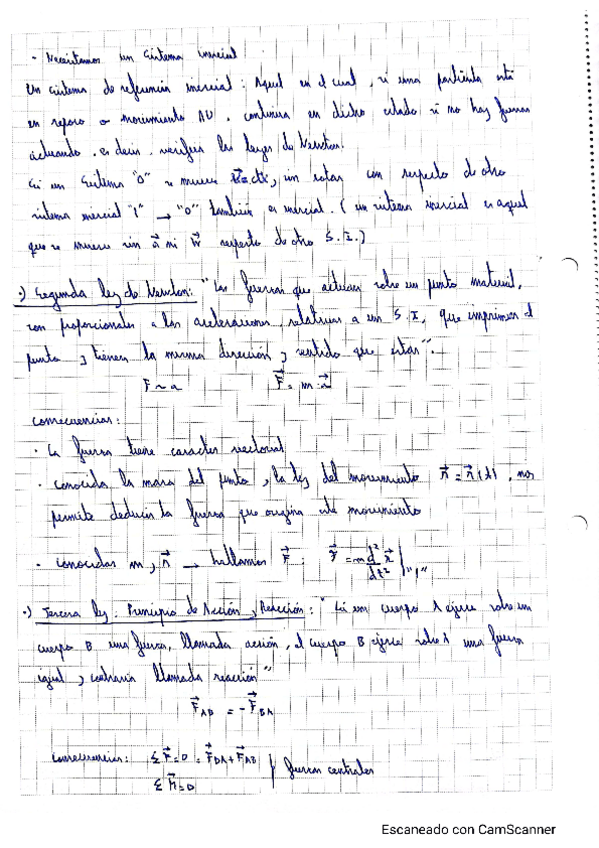 · Necesitamos un sistema inercial
Un sistema de referencia inercial: Aquel en el cual, si una partícula está
en reposo o movimiento RU, continua en dicho estado si no hay fuerzas
actuando, es decir, verifica las leyes de Newton.
Si un sistema "0" se mueve = cte, sin rotar con respecto de otro
sistema inercial "1" → "0" también es inercial. (un sistema inercial es aquel
que se mueve sin a⃗ ni w⃗ respecto de otro S.I.)
·) Segunda ley de Newton: "Las fuerzas que actúan sobre un punto material,
son proporcionales a las aceleraciones, relativas a un S.I, que imprimen al
punto y tienen la misma dirección y sentido que estas".
F ~ a F⃗ = m·a⃗
consecuencias:
· La fuerza tiene caracter vectorial
· conocida la masa del punto y la ley del movimiento r⃗ = r⃗(t), nos
permite deducir la fuerza que origina este movimiento
· conocidas m y r⃗ → hallamos F⃗: F⃗ = m d² r⃗ / dt² |"1"
·) Tercera ley: Principio de Acción y Reacción: "Si un cuerpo A ejerce sobre un
cuerpo B una fuerza, llamada acción, el cuerpo B ejerce sobre A una fuerza
igual y contraria llamada reacción"
F⃗AB = -F⃗BA
consecuencias: Σ F⃗ = 0 = F⃗BA + F⃗AB } fuerzas centrales
Σ M⃗ = 0
Escaneado con CamScanner